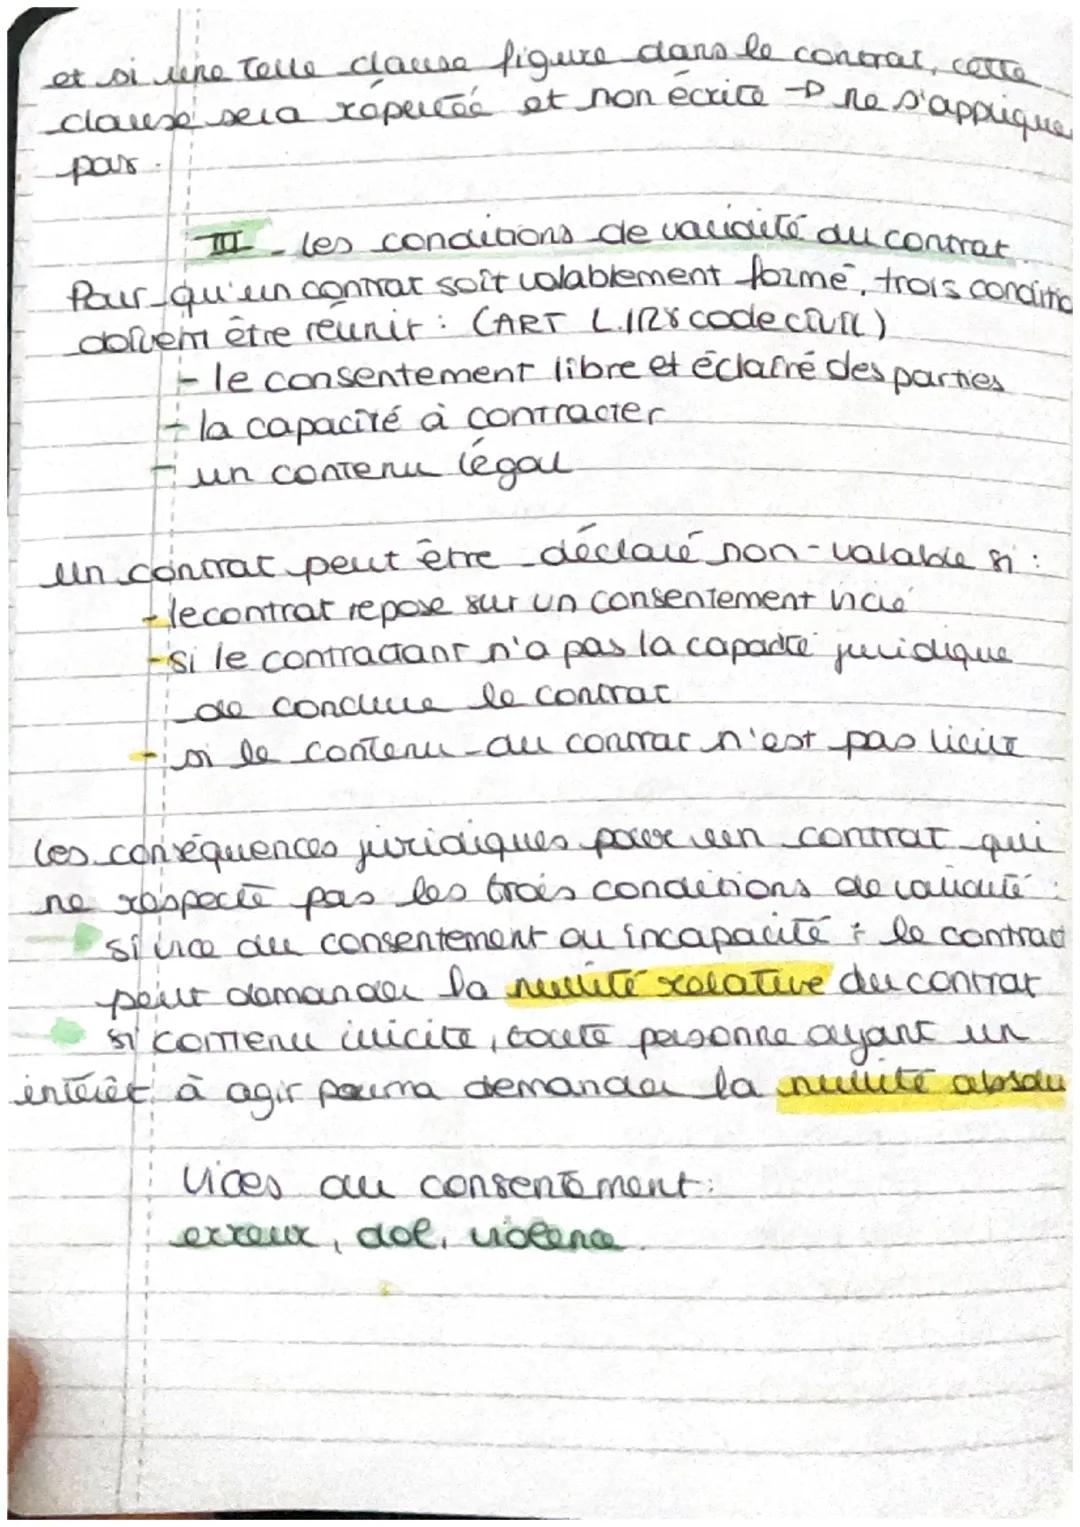 et si une telle clause figure dans le contrat, cette
clause sera réputée et non écrite → ne s'applique
pas.
III - les conditions de validité du contrat.
Pour qu'un contrat soit valablement formé, trois conditio
doivent être réunir : (ART L.1128 code civil)
- le consentement libre et éclairé des parties
- la capacité à contracter
- un contenu légal
un contrat peut être déclaré non-valable si :
- le contrat repose sur un consentement vicié
- si le contractant n'a pas la capacité juridique
de conclure le contrat
- si le contenu du contrat n'est pas licite
les conséquences juridiques pour un contrat qui
ne respecte pas les trois conditions de validité :
si vice du consentement ou incapacité : le contract
peut demander la nullité relative du contrat
si contenu illicite, toute personne ayant un
intérêt à agir pourra demander la nullité absolu
Vices du consentement :
erreur, dol, violence.